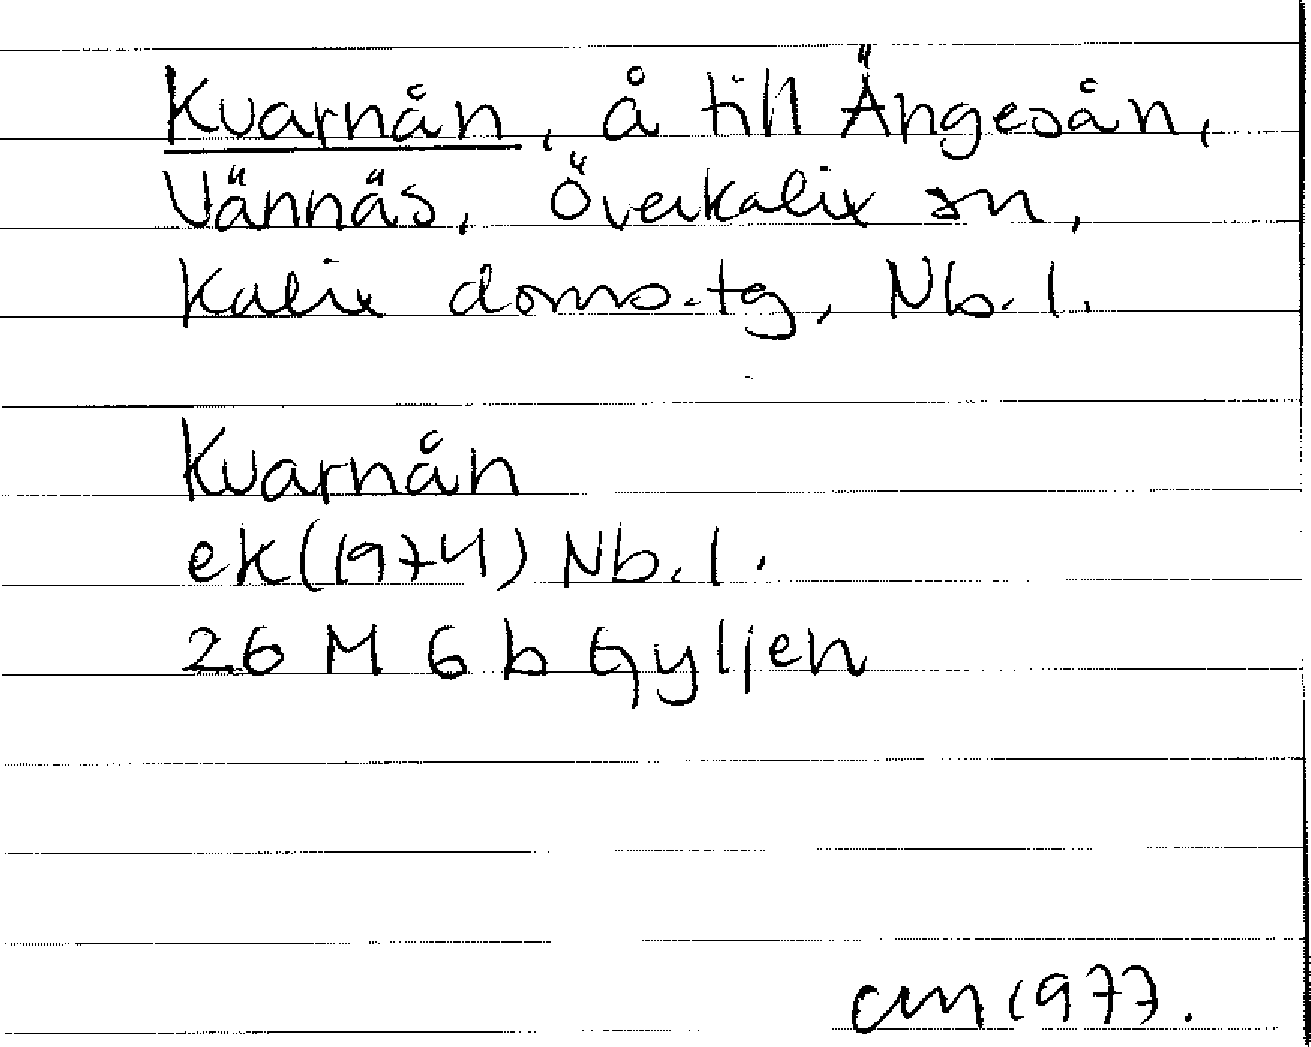 Kvarnån, å till Ängesån,
Vännäs, Överkalix sn,
Kalix doms.tg, Nb. l.
Kvarnån
ek(1974) Nb. l.
26 M 6 b Gyljen
cm 1977.